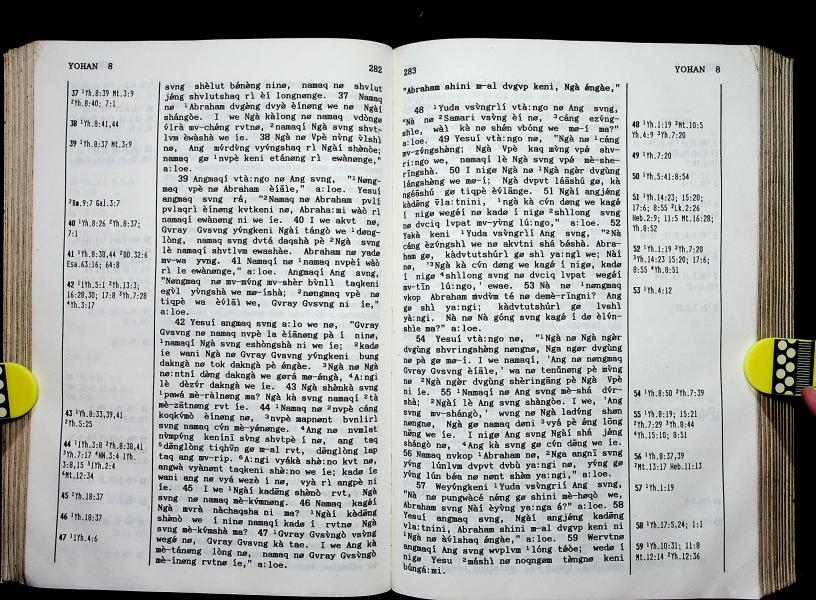 YOHAN 8
282
37 ¹Yh.8:39 Mt.3:9
²Yh.8:40; 7:1
38 ¹Yh.8:41,44
39 ¹Yh.8:37 Mt.3:9
²Rm.9:7 Gal.3:7
40 ¹Yh.8:26 ²Yh.8:37;
7:1
41 ¹Yh.8:38,44 ²DD.32:6
Esa.63:16; 64:8
42 ¹1Yh.5:1 ²Yh.13:3;
16:28,30; 17:8 ³Yh.7:28
⁴Yh.3:17
43 ¹Yh.8:33,39,41
²Yh.5:25
44 ¹1Yh.3:8 ²Yh.8:38,41
³Yh.7:17 ⁴WM.3:4 1Yh.
3:8,15 ⁵1Yh.2:4
⁶Mt.12:34
45 ¹Yh.18:37
46 ¹Yh.18:37
47 ¹1Yh.4:6
svng shèlut bǿnèng ninø, namaq nø shvlut
jǿng shvlutshaq rì èí longnønge. 37 Namaq
nø ¹Abraham dvgǿng dvyø̀ èínøng we nø Ngàí
shángòe. I we Ngà kàlong nø namaq vdòngø
v́lrà mv-chǿng rvtnø, ²namaqí Ngà svng shvt-
lvm èwàshà we íe. 38 Ngà nø Vpè nv̀ng v̀lshì
nø, Ang mv́rdv̀ng vyv́ngshaq rì Ngàí shø̀nòe;
namaq gø ¹nvpè keni etánøng rì ewànønge,"
a:loe.
39 Angmaqí vtà:ngo nø Ang svng, "¹Nøng-
maq vpè nø Abraham èíāle," a:loe. Yesuí
angmaq svng rá, "²Namaq nø Abraham pvlí
pvlaqrì èínøng kvtkeni nø, Abraha:mi wàò rì
namaqí ewànøng ni íe. 40 I we akvt nø,
Gvray Gvsvng yv́ngkeni Ngàí tángò we ¹døng-
lòng, namaq svng dvtá daqshà pè ²Ngà svng
lè namaqí shvtlvm ewashàe. Abraham nø yadø
mv-wa yvng. 41 Namaqí nø ¹namaq nvpèí wàò
rì le ewànønge," a:loe. Angmaqí Ang svng,
"Nøngmaq nø mv-mv́ng mv-shø̀r bv̀nlì taqkeni
egv̀l vyv́ngshà we mø-íshà; ²nøngmaq vpè nø
tiqpè wa èv́lāì we, Gvray Gvsvng ni íe,"
a:loe.
42 Yesuí angmaq svng a:lo we nø, "Gvray
Gvsvng nø namaq nvpè la èíānøng pà í ninø,
¹namaqí Ngà svng eshòngshà ni we íe; ²kadø
ie wani Ngà nø Gvray Gvsvng yv́ngkeni bung
dakngà nø tok dakngà pè éngàe. ³Ngà nø Ngà
nø:ntní døng dakngà we gørá mø-éngà, ⁴A:ngi
lè dèzv́r dakngà we íe. 43 Ngà shø̀nkà svng
¹pawá mè-ràlnøng ma? Ngà kà svng namaqí ²tà
mè-zātnøng rvt íe. 44 ¹Namaq nø ²nvpè cáng
koqkv́mò èínøng nø, ³nvpè mapnønt bvnlìrì
svng namaq cv́n mè-yénønge. ⁴Ang nø nvmlat
nv̀mpv́ng kenínī svng shvtpè í nø, ang taq
⁵dāngløng tiqhv̀n gø m-al rvt, dāngløng lap
taq ang mv-rip. ⁶A:ngi vyákà shø̀:no kvt nø,
angwà vyànønt taqkeni shè:no we íe; kadø íe
wani ang nø vyá wezè í nø, vyà rì angpè ni
íe. 45 I we ¹Ngàí kadāng shø̀nò rvt, Ngà
svng nø namaq mè-kv́mnøng. 46 Namaq kagéí
Ngà mvrà nàchaqsha ni ma? ¹Ngàí kādàng
shø̀nò we í ninø namaqí kadø í rvtnø Ngà
svng mè-kv́mshà ma? 47 ¹Gvray Gvsv̀ngò vsv̀ng
wegé nø, Gvray Gvsvng kà tae. I we Ang kà
mè-tánøng lòng nø, namaq nø Gvray Gvsv̀ngò
mè-ínøng rvtnø íe," a:loe.
283
YOHAN 8
"Abraham shìni m-al dvgvp keni, Ngà éngàe,"
48 ¹Yuda vsv̀ngrìí vtà:ngo nø Ang svng,
"Nà nø ²Samari vsv̀ng èí nø, ³cáng ezv́ng-
shle, wàl kà nø shǿn vbóng we mø-í ma?"
a:loe. 49 Yesuí vtà:ngo nø, "Ngà nø ¹cáng
mv-zv́ngshèng; Ngàí Vpè kaq mv̀ng vpè shv-
rì:ngo we, namaqí lè Ngà svng vpè mè-she-
rīngshà. 50 I nigø Ngà nø ¹Ngà ngør dvgùng
lángshèng we mø-í; Ngà dvpvt láāshú gø, kà
ngéāshú gø tiqpè èv́lānge. 51 Ngàí àngjéng
kàdāng v̀la:tnìnì, ¹ngà kà cv́n døng we kagé
í nigø wegéí nø kadø í nigø ²shìlong svng
nø dvcìq lvpat mv-yv̀ng lú:ngo," a:loe. 52
Yakà keni ¹Yuda vsv̀ngrìí Ang svng, "²Nà
cáng èzv́ngshì we nø akvtni shá béshà. Abra-
ham gø, kàdvtutshúrì gø shì ya:ngì we; Nàí
nø, ³Ngà kà cv́n dāng we kagé í nigø, kadø
í nigø ⁴shìlong svng nø dvcìq lvpat wegéí
mv-tīn lú:ngo,' ewae. 53 Nà nø ¹nøngmaq
vkop Abraham mv̀dv̀m té nø demè-rīngnì? Ang
gø shì ya:ngì; kàdvtutshúrì gø lvshì
yà:ngì. Nà nø Nà góng svng kagé í dø èlv́n-
shìe ma?" a:loe.
54 Yesuí vtà:ngo nø, "¹Ngà nø Ngà ngør
dvgùng shvringshāng nøngnø, Ngà ngør dvgùng
nø pà gø mø-í. I we namaqí, 'Ang nø nøngmaq
Gvray Gvsvng èíāle,' wa nø tenùnøng pè mv̀ng
nø ²Ngà ngør dvgùng shèrìngāng pè Ngà Vpè
ni íe. 55 ¹Namaqí nø Ang svng mè-shá dv́r-
shà; ²Ngàí lè Ang svng shàngòe. I we, 'Ang
svng mv-shángò,' wvng nø Ngà ladv́ng shøn
nøngnø, Ngà gø namaq døni ³vyá pè éng lōng
dēng we íe. I nigø Ang svng Ngàí shá jéng
shángò nø, ⁴Ang kà svng gø cv́n dāng we íe.
56 Namaq nvkop ¹Abraham nø, ²Nga angnī svng
yv́ng lúnlvm dvpvt dvbù ya:ngì nø, yv́ng gø
yv́ng lún béa nø nønt shè̀m ya:ngì," a:loe.
57 Weyv́ngkeni ¹Yuda vsv̀ngrìí Ang svng,
"Nà nø pungwàcé néng gø shìni mè-høqò we,
Abraham svng Nàí èyv̀ng ya:nga é?" a:loe. 58
Yesuí angmaq svng, Ngàí angjéng kadāng
vla:tnìnì, Abraham shìni m-al dvgvp keni nì
¹Ngà nø àv́lshaq éngàe," a:loe. 59 Wervtnø
angmaqí Ang svng wvplvm ¹lóng téòe; wedø í
nigø Yesu ²máshì nø noqngøm tèngnø keni
búngá:mì.
48 ¹Yh.1:19 ²Mt.10:5
Yh.4:9 ³Yh.7:20
49 ¹Yh.7:20
50 ¹Yh.5:41;8:54
51 ¹Yh.14:23; 15:20;
17:6; 8:55 ²Lk.2:26
Heb.2:9; 11:5 Mt.16:28;
Yh.8:52
52 ¹Yh.1:19 ²Yh.7:20
³Yh.14:23 15:20; 17:6;
8:55 ⁴Yh.8:51
53 ¹Yh.4:12
54 ¹Yh.8:50 ²Yh.7:39
55 ¹Yh.8:19; 15:21
²Yh.7:29 ³Yh.8:44
⁴Yh.15:10; 8:51
56 ¹Yh.8:37,39
²Mt.13:17 Heb.11:13
57 ¹Yh.1:19
58 ¹Yh.17:5,24; 1:1
59 ¹Yh.10:31; 11:8
Mt.12:14 ²Yh.12:36